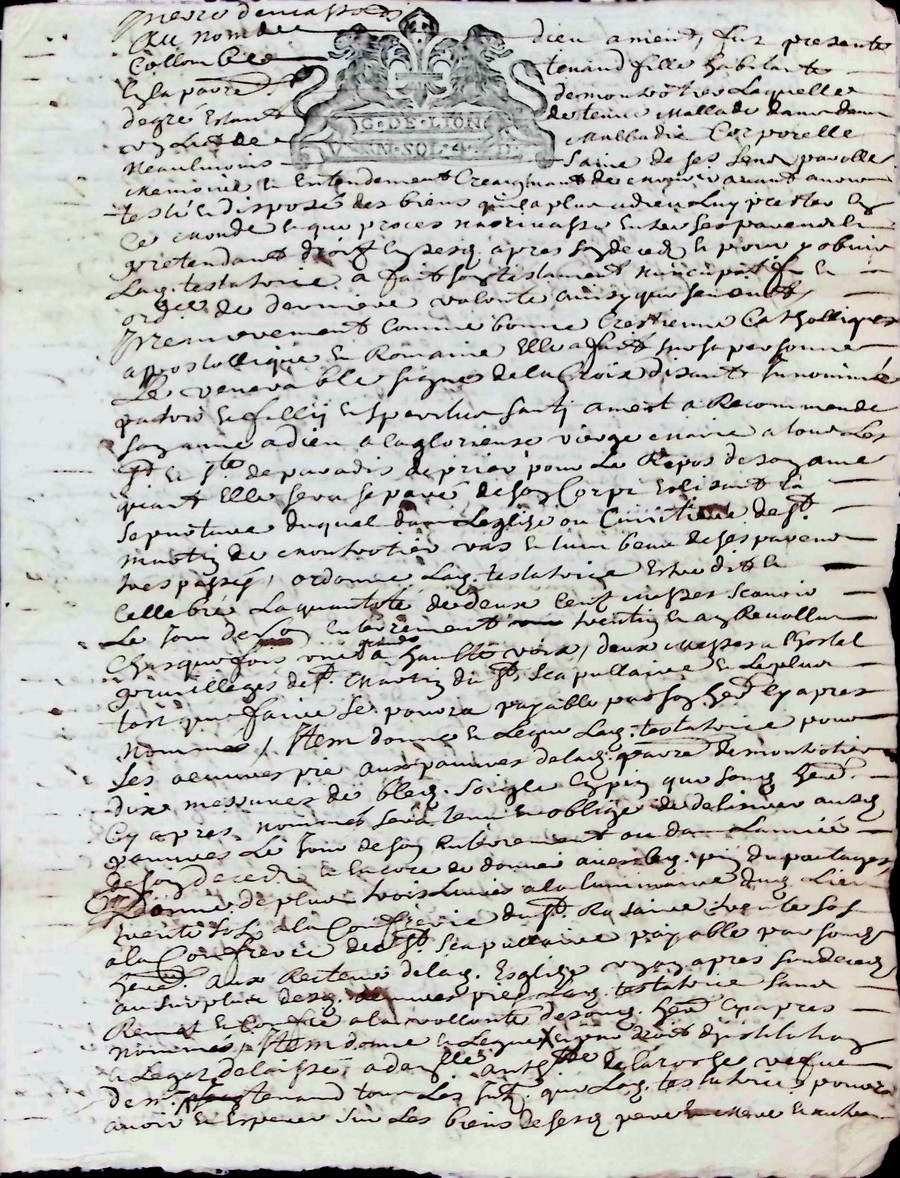 Au nom de dieu amen, fut presente
Collombe tenand fille habitante
en la parre de montrotier Laquelle
degré Estant detenue Mallade dans dun
un Lit de Malladie Corporelle
G·DE·LION
Neaulmoins Saine de ses sens parolle
memoire et Entendement Craignant de mourir avant avoir
testé et disposé des biens quil a plu a dieu luy prester en
Ce monde et que proces narrivasse Entre ses parens
pretendant droit en yceux apres son deced et pour y obvier
Lad. testatrice a fait son testament nuncupatif et
ordce de derniere volonté ainsy que sensuit
Premierement Comme bonne Crestienne Catholliques
apostollique et Romaine Elle a fait sur sa personne
Le venerable signe de la Croix disant In nominé
patris et fillij et spiritus santj ament a Recommende
son ame a dieu a la glorieuse vierge marie a tous Les
St et Ste de paradis de prier pour Le Repos de son ame
quant Elle sera separé de son Corps Eslisant sa
sepulture duquel dans Leglise ou Cimitiere de St
martin de montrotier vas et tumbeau de ses parens
trespassés, ordonne Lad. testatrice Estre dit et
Cellebré La quantité de deux Cent messes scavoir
Le Jour de son Enterrement trentin en an Revollu
Chasque fois une grande a haulte voix, deux messes a lhostel
privilleges de St. Martin du St. Scapullaire et Le plus
tost que faire se pourra payable par son hed. Cy apres
nommés, Item donne et Legue Lad. testatrice pour
Les oeuvres pie aux pauvres de lad. parre de montrotier
dix mesures de bled soigle Cy pin que sond hed.
Cy apres nommés sera tenu et obligé de delivrer ausd
pauvres Le Jour de son Enterrement ou dans Lannée
de son deced et Encore de donner avec led. pin du potages
Donne de plus trois Livres a la luminaire dud. Lieu
trente sols a la Confrerie du St. Rosaire trente sols
a la Confrerie du St. scapullaire payable par sond
hered. aux Recteur de lad. Esglise un an apres son deced
au surplus desd. oeuvres pies Lad. testatrice sans
Remet et Confie a la vollonté de sond. hed Cy apres
nommés, Item donne et Legue par droit djnstitution
et Legat delaissé a dalle anthtte de laroche vefve
de mr tenand tous Les fruts que Lad. testatrice pouvoit
avoir et Esperer sur Les biens de sesd pere et mere et autres